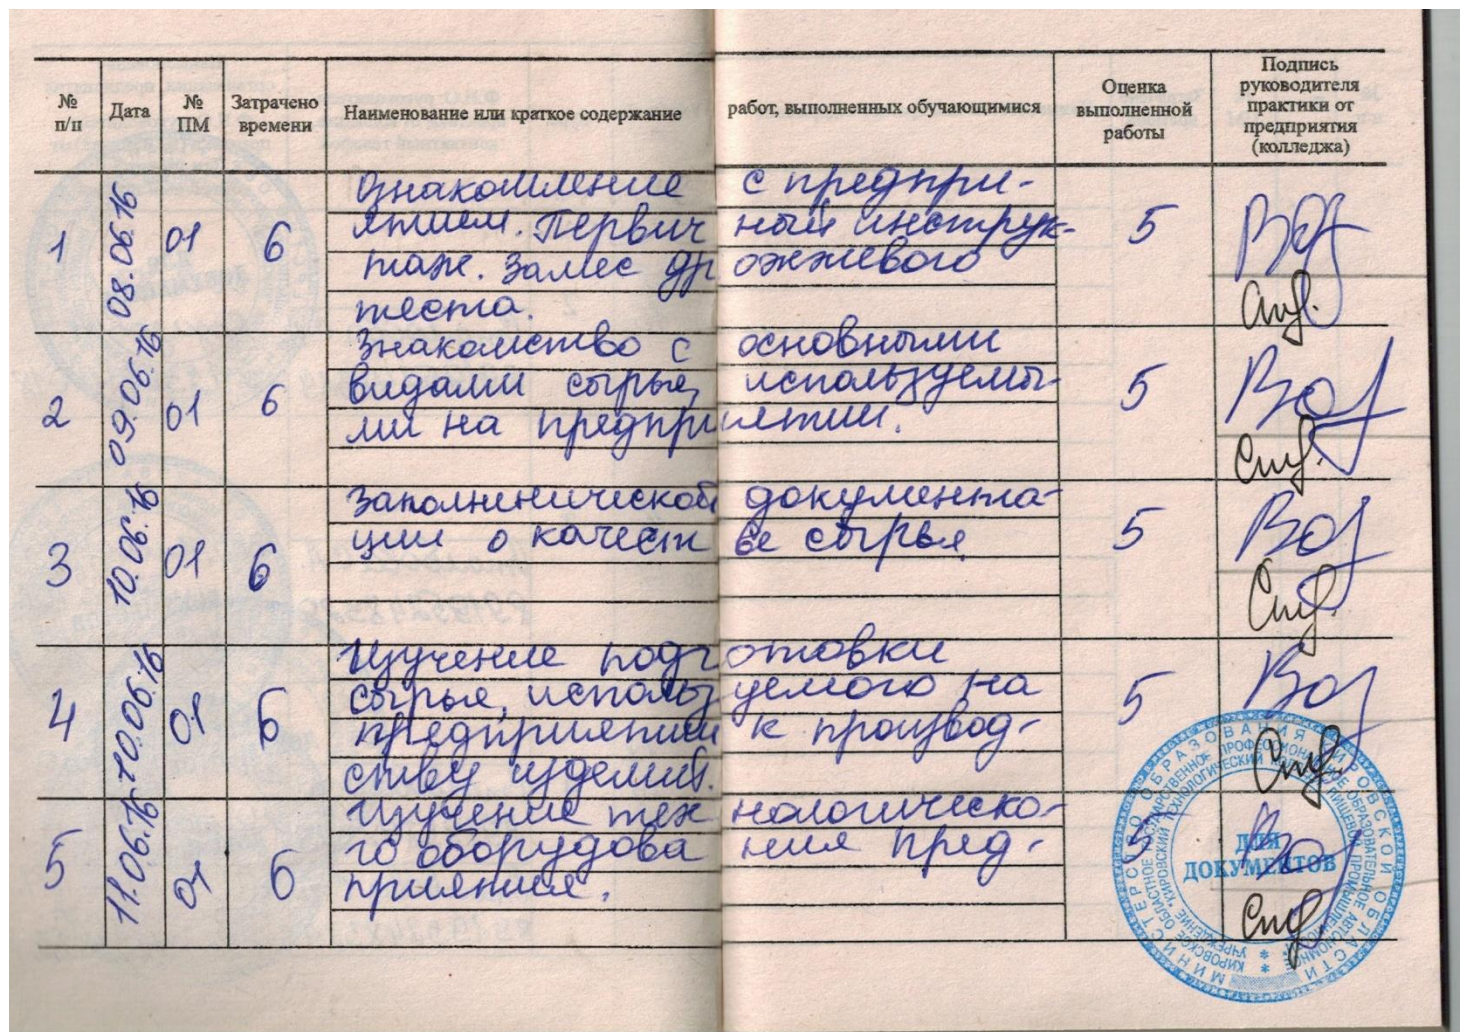 № п/п Дата № ПМ Затрачено времени Наименование или краткое содержание работ, выполненных обучающимися Оценка выполненной работы Подпись руководителя практики от предприятия (колледжа)
1 08.06.16 01 6 Ознакомление с предпри-
ятием. Первичный инструк-
таж. Замес дрожжевого
теста. 5
2 09.06.16 01 6 Знакомство с основными
видами сырья, используемы-
ми на предприятии. 5
3 10.06.16 01 6 документа-
ции о качестве сырья 5
4 10.06.16 01 6 Изучение подготовки
сырья, используемого на
предприятии к производ-
ству изделий. 5
5 11.06.16 01 6 Изучение технологическо-
го оборудования пред-
приятия. 5
МИНИСТЕРСТВО ОБРАЗОВАНИЯ КИРОВСКОЙ ОБЛАСТИ
ДЛЯ
ДОКУМЕНТОВ